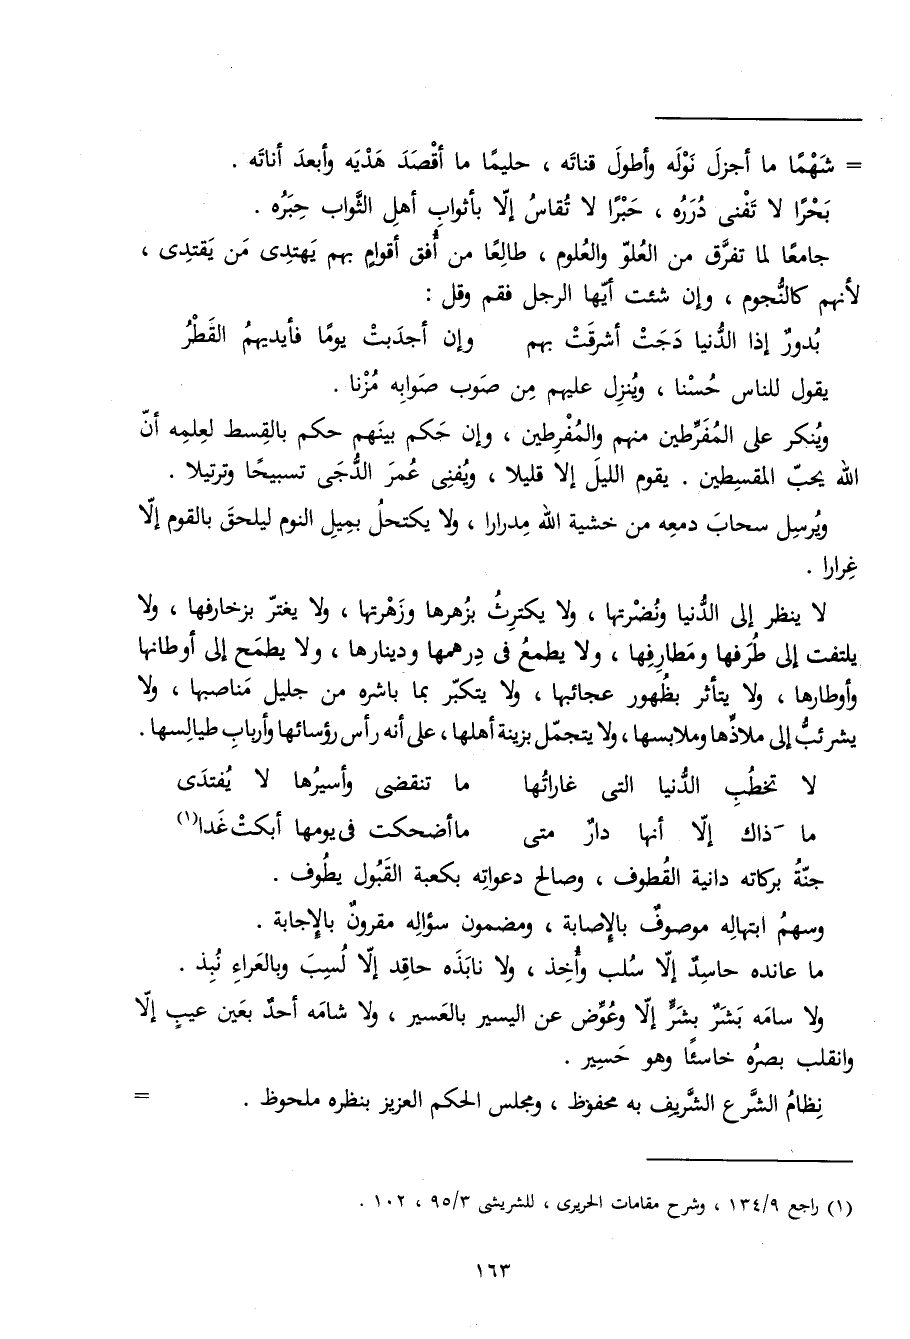 = شَهْمًا ما أجزلَ نَوْلَه وأطولَ قناتَه ، حليمًا ما أقْصَدَ هَدْيَه وأبعدَ أناتَه .
بَحْرًا لا تَفْنى دُرَرُه ، حَبْرًا لا تُقاسُ إلّا بأثوابِ أهلِ الثَّواب حِبَرُه .
جامعًا لما تفرَّق من العُلوّ والعُلوم ، طالِعًا من أُفق أقوامٍ بهم يَهتِدى مَن يَقتدِى ،
لأنهم كالنُّجوم ، وإن شئت أيّها الرجل فقم وقل :
بُدورٌ إذا الدُّنيا دَجَتْ أشرقَتْ بهم وإن أجدَبتْ يومًا فأيديهمُ القَطْرُ
يقول للناس حُسْنا ، ويُنزِل عليهم مِن صَوب صَوابِه مُزْنا .
ويُنكر على المُفَرِّطين منهم والمُفْرِطين ، وإن حَكم بينَهم حكم بالقِسط لعِلمِه أنّ
الله يحبّ المقسِطين . يقوم الليلَ إلا قليلا ، ويُفنِى عُمرَ الدُّجَى تسبيحًا وترتيلا .
ويُرسِل سحابَ دمعِه من خشية الله مِدرارا ، ولا يكتحلُ بمِيلِ النوم ليلحقَ بالقوم إلّا
غِرارا .
لا ينظر إلى الدُّنيا ونُضْرتِها ، ولا يكترِثُ بزُهرها وزَهْرتِها ، ولا يغترّ بزخارفها ، ولا
يلتفت إلى طُرَفها ومَطارِفِها ، ولا يطمعُ فى دِرهمها ودينارها ، ولا يطمَح إلى أوطانها
وأوطارها ، ولا يتأثر بظُهور عجائبها ، ولا يتكبّر بما باشره من جليل مَناصبها ، ولا
يشرئبُّ إلى ملاذِّها وملابسها ، ولا يتجمّل بزينة أهلها ، على أنه رأس رؤسائها وأربابِ طيالِسها .
لا تخطُبِ الدُّنيا التى غاراتُها ما تنقضى وأسيرُها لا يُفتدَى
ما ذاك إلّا أنها دارٌ متى ما أضحكت فى يومها أبكتْ غَدا(١)
جنّةُ بركاته دانية القُطوف ، وصالح دعواتِه بكعبة القَبُول يطُوف .
وسهمُ ابتهالِه موصوفٌ بالإصابة ، ومضمون سؤالِه مقرونٌ بالإجابة .
ما عانده حاسِدٌ إلّا سُلب وأُخِذ ، ولا نابَذَه حاقِد إلّا لُسِبَ وبالعَراءِ نُبِذ .
ولا سامَه بَشَرٌ بشَرٍّ إلّا وعُوِّض عن اليسير بالعَسير ، ولا شامَه أحدٌ بعَين عيبٍ إلّا
وانقلب بصرُه خاسئًا وهو حَسِير .
نِظامُ الشَّرع الشَّريف به محفوظ ، ومجلس الحكم العزيز بنظره ملحوظ . =
(١) راجع ١٣٤/٩ ، وشرح مقامات الحريرى ، للشريشى ٩٥/٣ ، ١٠٢ .
١٦٣